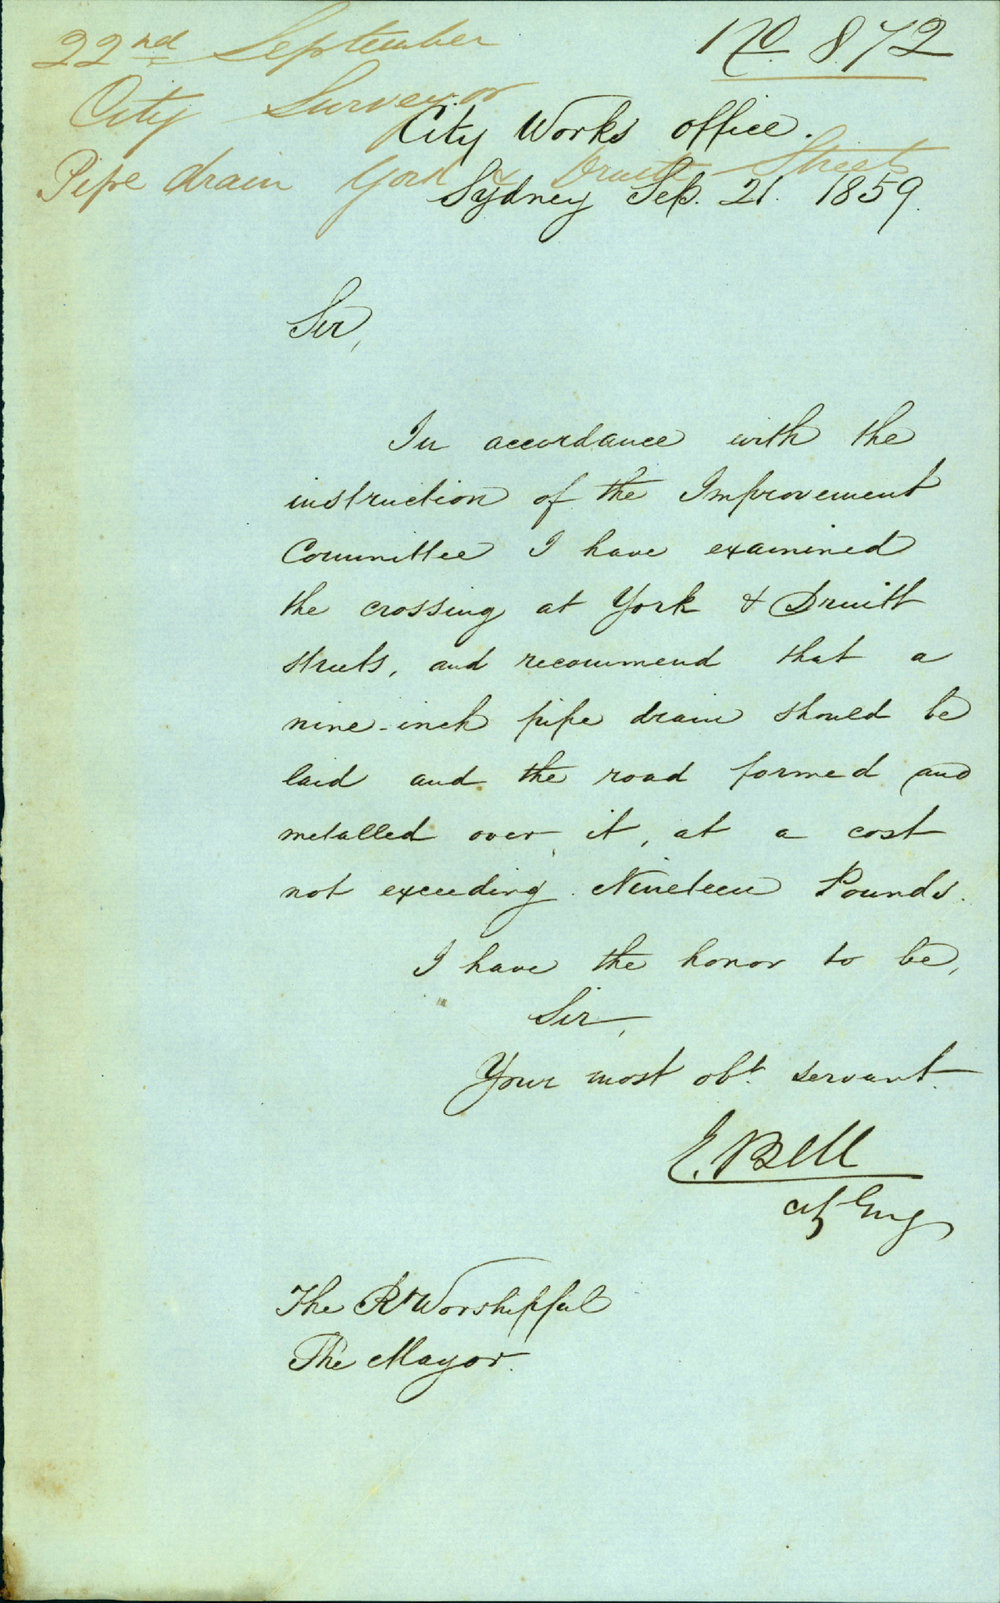 22nd September
No. 872
City Surveyor
City Works Office.
Pipe drain York & Druitt Street
Sydney Sep. 21. 1859.
Sir,
In accordance with the
instruction of the Improvement
Committee I have examined
the crossing at York & Druitt
streets, and recommend that a
nine-inch pipe drain should be
laid and the road formed and
metalled over it, at a cost
not exceeding Nineteen Pounds.
I have the honor to be,
Sir,
Your most obt. servant.
E. Bell
City Eng
The Rt Worshipful
The Mayor.